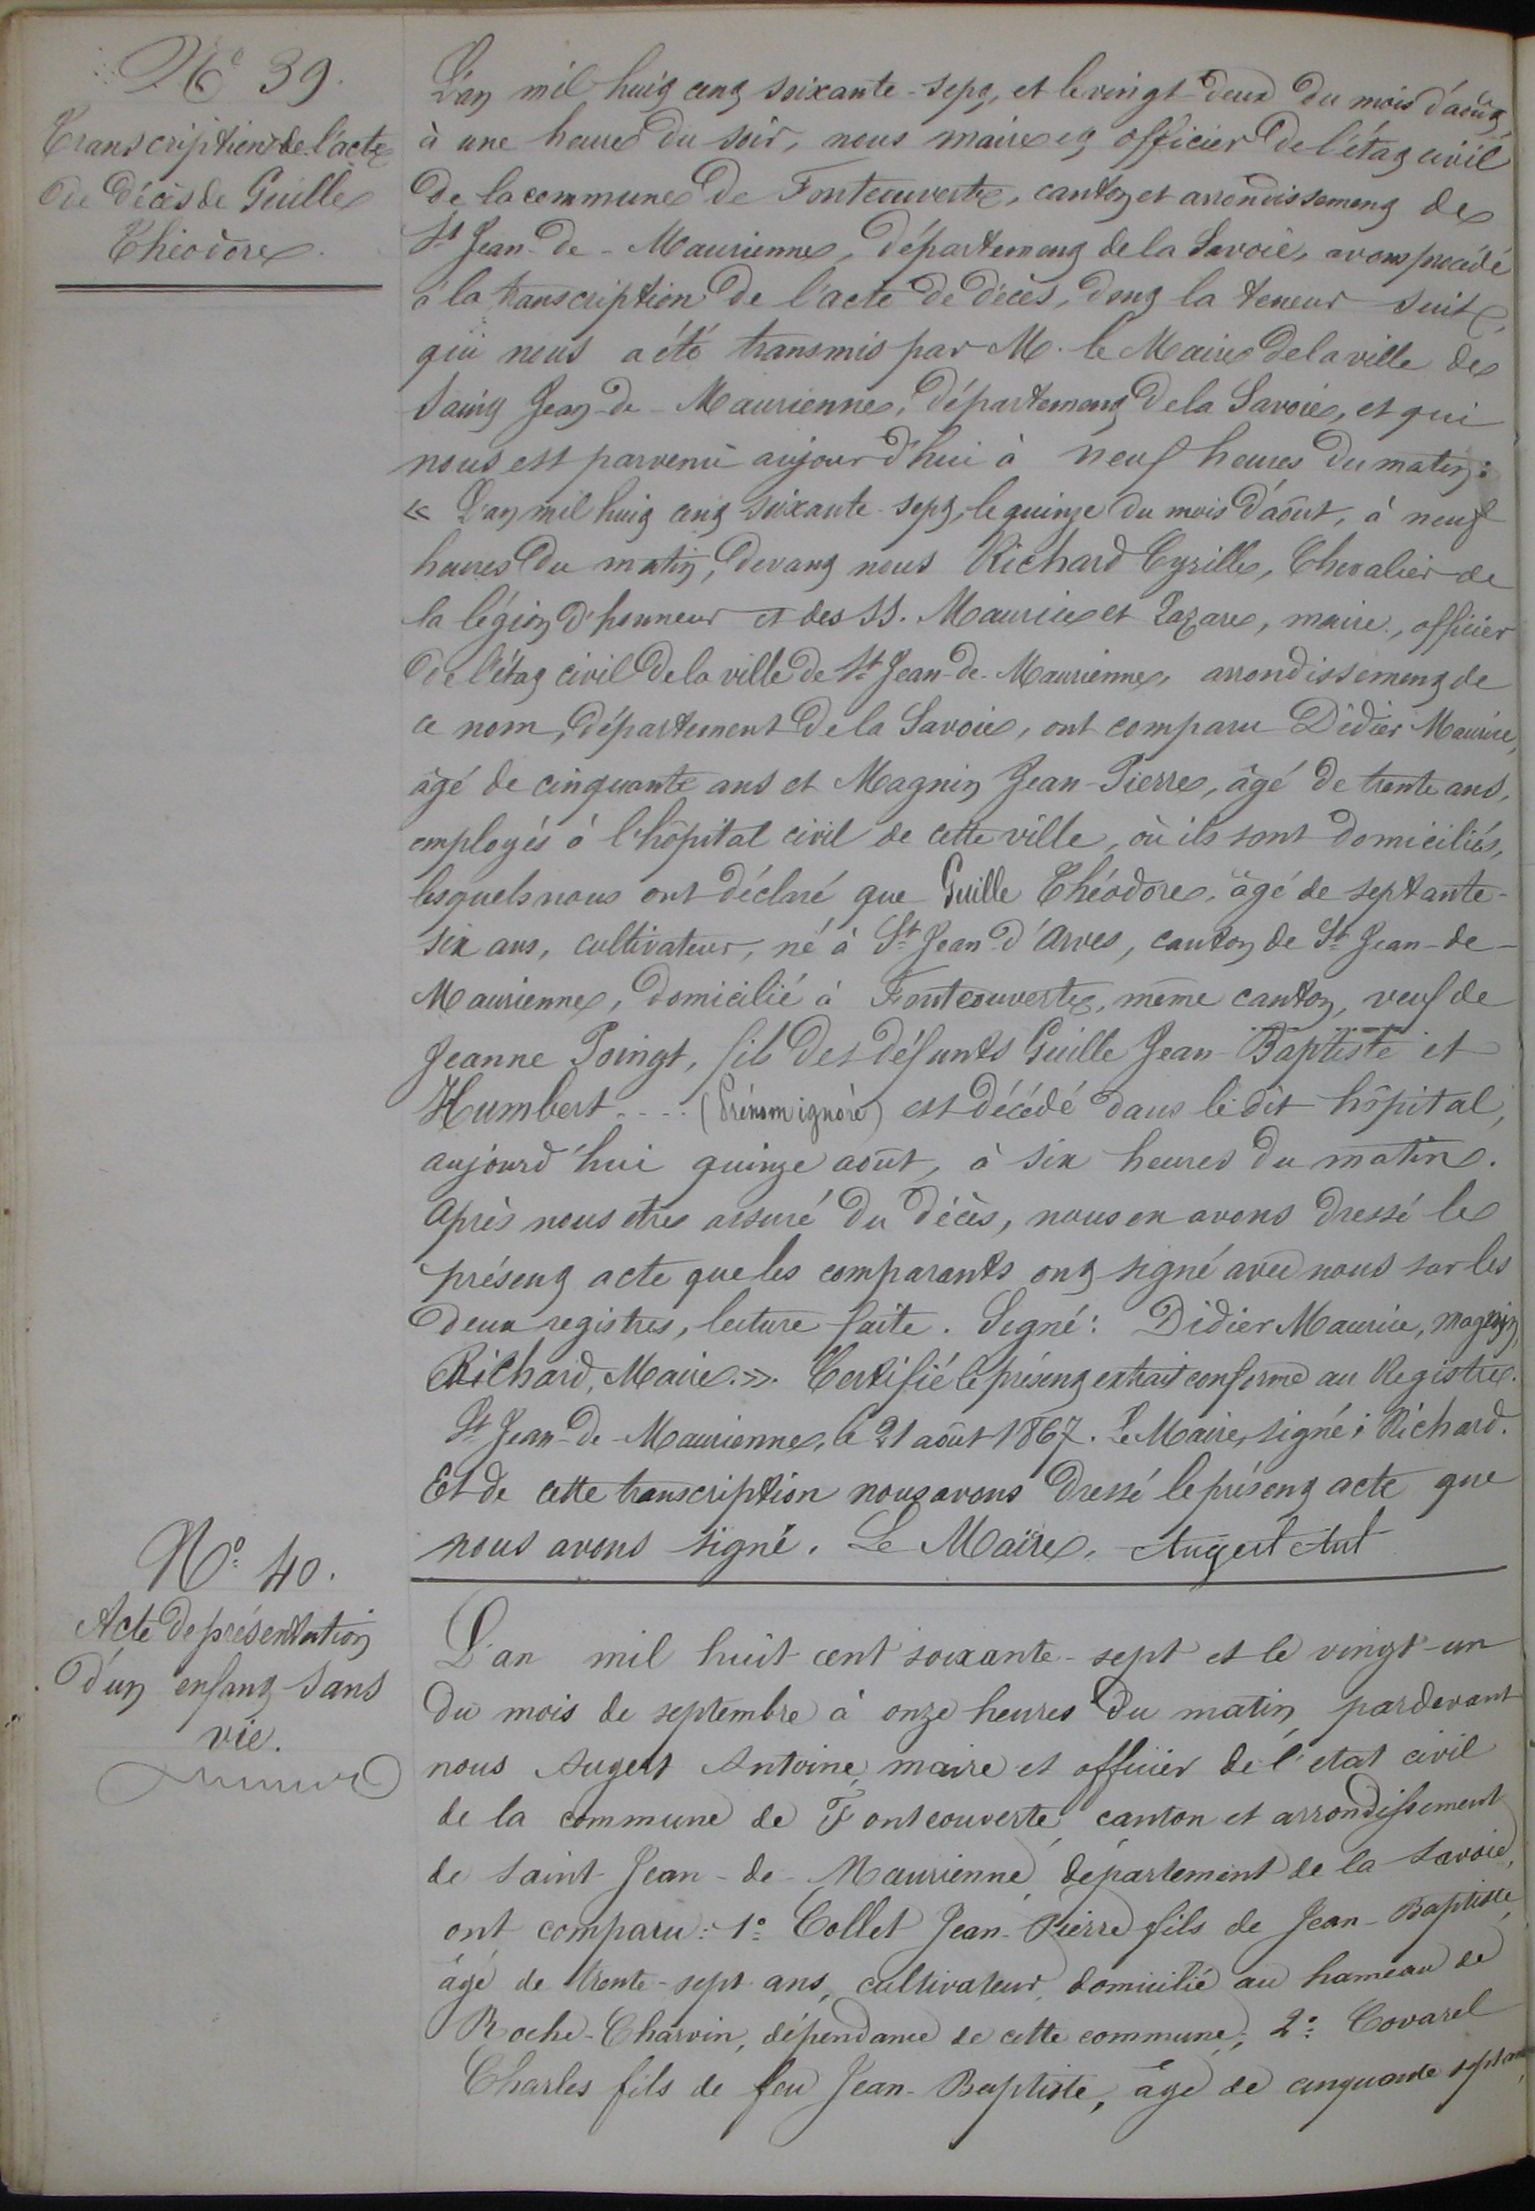 N° 39.
Transcription de l'acte
de décès de Guille
Théodore.
L'an mil huit cent soixante-sept, et le vingt-deux du mois d'août
à une heure du soir, nous maire et officier de l'état civil
de la commune de Fontcouverte, canton et arrondissement de
St Jean-de-Maurienne, département de la Savoie, avons procédé
à la transcription de l'acte de décès, dont la teneur suit,
qui nous a été transmis par M. le Maire de la ville de
Saint Jean-de-Maurienne, département de la Savoie, et qui
nous est parvenu aujourd'hui à neuf heures du matin:
« L'an mil huit cent soixante-sept, le quinze du mois d'août, à neuf
heures du matin, devant nous Richard Cyrille, Chevalier de
la légion d'honneur et des SS. Maurice et Lazare, maire, officier
de l'état civil de la ville de St Jean-de-Maurienne, arrondissement de
ce nom, département de la Savoie, ont comparu Didier Maurice,
âgé de cinquante ans et Magnin Jean-Pierre, âgé de trente ans,
employés à l'hôpital civil de cette ville, où ils sont domiciliés,
lesquels nous ont déclaré que Guille Théodore, âgé de septante-
six ans, cultivateur, né à St Jean d'Arves, canton de St Jean-de-
Maurienne, domicilié à Fontcouverte, même canton, veuf de
Jeanne Poingt, fils des défunts Guille Jean-Baptiste et
Humbert .... (Prénom ignoré) est décédé dans le dit hôpital,
aujourd'hui quinze août, à six heures du matin.
Après nous être assuré du décès, nous en avons dressé le
présent acte que les comparants ont signé avec nous sur les
deux registres, lecture faite. Signé: Didier Maurice, Magnin,
Richard, Maire.». Certifié le présent extrait conforme au Registre.
St Jean-de-Maurienne, le 21 août 1867. Le Maire, signé: Richard.
Et de cette transcription nous avons dressé le présent acte que
nous avons signé. Le Maire, Augert Ant
N° 40.
Acte de présentation
d'un enfant sans
vie.
L'an mil huit cent soixante-sept et le vingt-un
du mois de septembre à onze heures du matin, pardevant
nous Augert Antoine, maire et officier de l'etat civil
de la commune de Fontcouverte, canton et arrondissement
de Saint-Jean-de-Maurienne, département de la Savoie,
ont comparu: 1° Collet Jean-Pierre fils de Jean-Baptiste,
âgé de trente-sept ans, cultivateur, domicilié au hameau de
Roche-Charvin, dépendance de cette commune; 2° Covarel
Charles fils de feu Jean-Baptiste, âgé de cinquante sept ans,